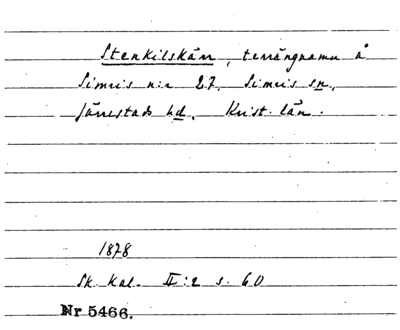 Stenkilskärr, terrängnamn å
Simris n:r 27, Simris sn,
Järrestads hd, Krist. län.
1878
Sk. Kal. II:2 s. 60
Nr 5466.